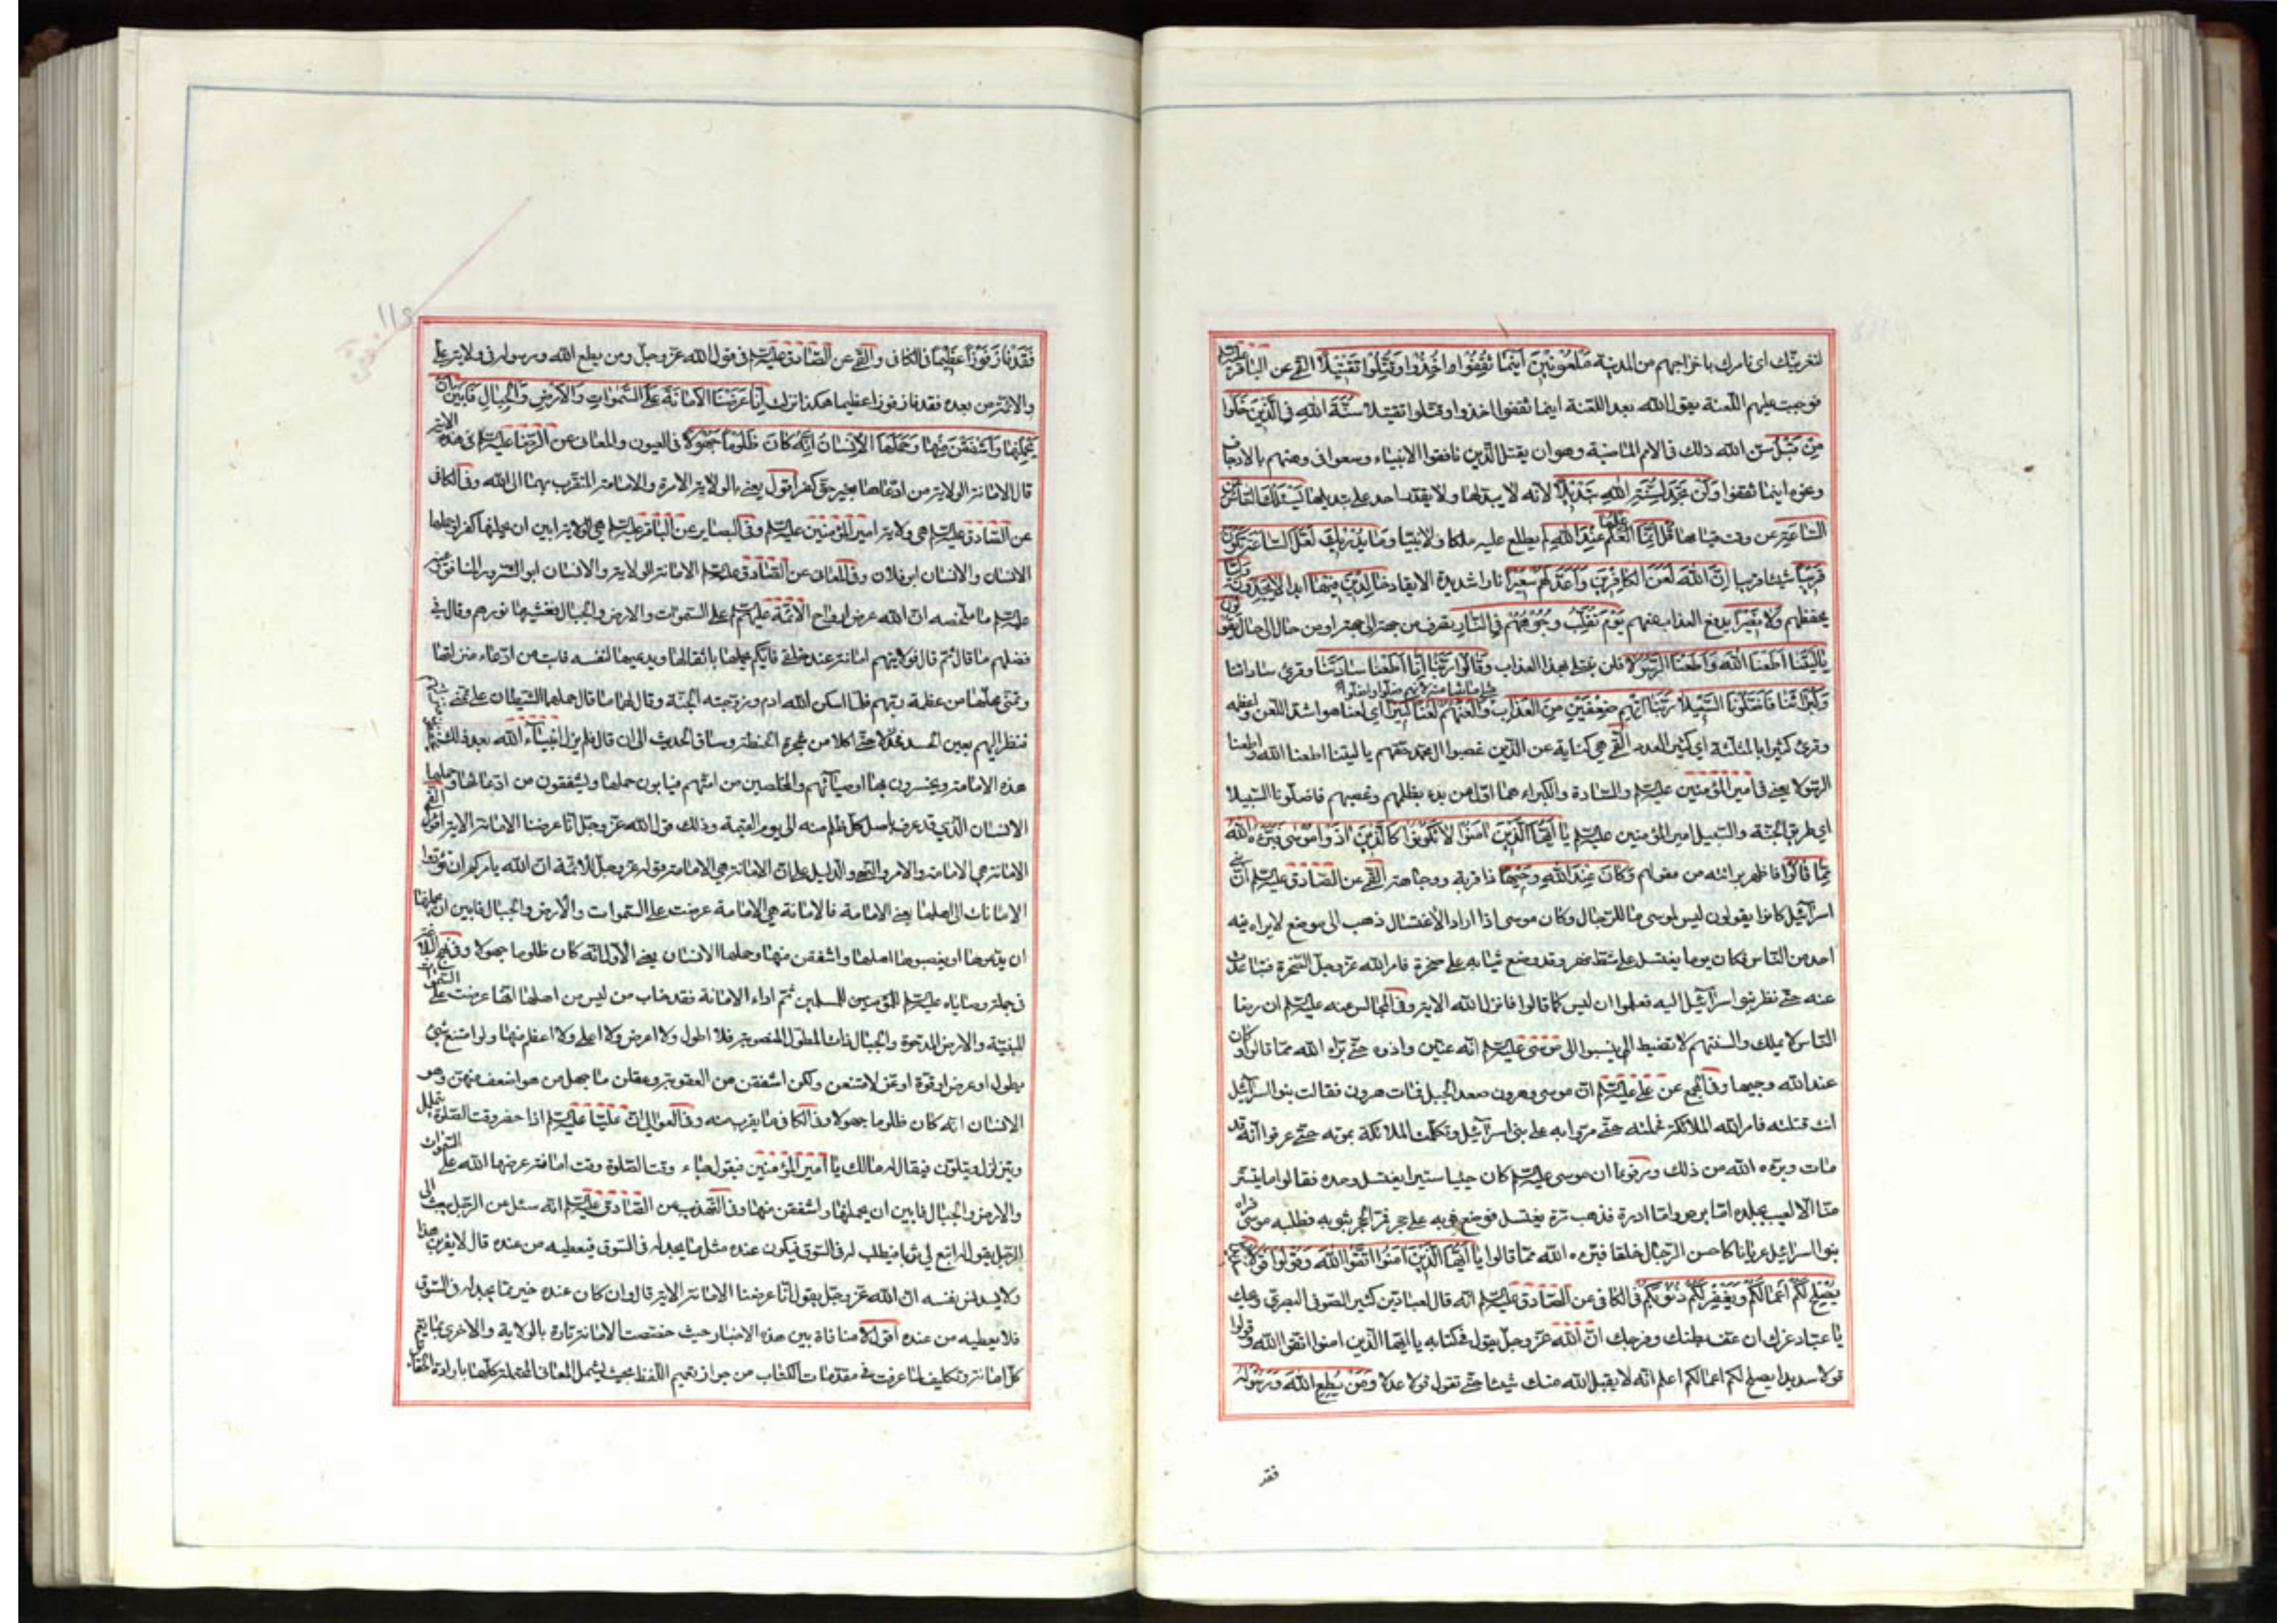 لنغرينّك اى نامرك باخراجهم من المدينة مَلْعُونِينَ أَيْنَمَا ثُقِفُوا اُخِذُوا وَقُتِّلُوا تَقْتِيلًا القمّى عن الباقر عليه السلام
فوجبت عليهم اللّعنة بقول الله بعد اللّعنة اينما ثقفوا اخذوا وقتّلوا تقتيلا سُنَّةَ اللهِ فِي الَّذِينَ خَلَوْا
مِنْ قَبْلُ سنّ الله ذلك فى الامم الماضية وهو ان يقتل الّذين نافقوا الانبياء وسعوا فى وهنهم بالارجاف
ونحوه اينما ثقفوا وَلَنْ تَجِدَ لِسُنَّةِ اللهِ تَبْدِيلًا لانّه لا يبدّلها ولا يقدر احد على تبديلها يَسْئَلُكَ النَّاسُ عَنِ
السَّاعَةِ عن وقت قيامها قُلْ اِنَّمَا عِلْمُهَا عِنْدَ اللهِ لم يطلع عليه ملكا ولا نبيّا وَمَا يُدْرِيكَ لَعَلَّ السَّاعَةَ تَكُونُ
قَرِيبًا شيئا قريبا اِنَّ اللهَ لَعَنَ الْكَافِرِينَ وَاَعَدَّ لَهُمْ سَعِيرًا نارا شديدة الايقاد خَالِدِينَ فِيهَا اَبَدًا لَا يَجِدُونَ وَلِيًّا
يحفظهم وَلَا نَصِيرًا يدفع العذاب عنهم يَوْمَ تُقَلَّبُ وُجُوهُهُمْ فِي النَّارِ تصرف من جهة الى جهة او من حال الى حال يَقُولُونَ
يَا لَيْتَنَا اَطَعْنَا اللهَ وَاَطَعْنَا الرَّسُولَا فلن نبتلى بهذا العذاب وَقَالُوا رَبَّنَا اِنَّا اَطَعْنَا سَادَتَنَا وقرئ ساداتنا
وَكُبَرَاءَنَا فَاَضَلُّونَا السَّبِيلَا رَبَّنَا اٰتِهِمْ ضِعْفَيْنِ مِنَ الْعَذَابِ مثلى ما اتيتنا منه لانهم ضلوا واضلوا وَالْعَنْهُمْ لَعْنًا كَبِيرًا اى لعنا هو اشدّ اللعن واعظمه
وقرئ كثيرا بالمثلّثة اى كثير العدد القمّى هى كناية عن الّذين غصبوا آل محمد حقّهم يا ليتنا اطعنا الله واطعنا
الرّسولا يعنى فى امير المؤمنين عليه السلام والسّادة والكبراء هما اوّل من بدء بظلمهم وغصبهم فاضلّونا السّبيلا
اى طريق الجنّة والسّبيل امير المؤمنين عليه السلام يَا اَيُّهَا الَّذِينَ اٰمَنُوا لَا تَكُونُوا كَالَّذِينَ اٰذَوْا مُوسٰى فَبَرَّءَهُ اللهُ
مِمَّا قَالُوا فاظهر برائته من مقولهم وَكَانَ عِنْدَ اللهِ وَجِيهًا ذا قربة ووجاهة القمّى عن الصّادق عليه السلام انّ بنى
اسرآئيل كانوا يقولون ليس لموسى ما للرّجال وكان موسى اذا اراد الاغتسال ذهب الى موضع لا يراه فيه
احد من النّاس فكان يوما يغتسل على شطّ نهر وقد وضع ثيابه على صخرة فامر الله عزّ وجلّ الصّخرة فتباعدت
عنه حتّى نظر بنوا اسرآئيل اليه فعلموا ان ليس كما قالوا فانزل الله الاية وفى المجالس عنه عليه السلام ان رضا
النّاس لا يملك والسنتهم لا تضبط الم ينسبوا الى موسى عليه السلام انّه عنّين واذوه حتّى برّاه الله ممّا قالوا وكان
عند الله وجيها وفى المجمع عن على عليه السلام انّ موسى وهرون صعدا الجبل فمات هرون فقالت بنوا اسرآئيل
انت قتلته فامر الله الملائكة فحملته حتّى مرّوا به على بنى اسرآئيل وتكلّمت الملائكة بموته حتّى عرفوا انّه قد
مات وبرّءه الله من ذلك ومرفوعا ان موسى عليه السلام كان حييا ستيرا يغتسل وحده فقالوا ما يتستّر
منّا الّا لعيب بجلده امّا برص وامّا ادرة فذهب مرّة يغتسل فوضع ثوبه على حجر فمرّ الحجر بثوبه فطلبه موسى فراه
بنوا اسرائيل عريانا كاحسن الرّجال خلقا فبرّءه الله ممّا قالوا يَا اَيُّهَا الَّذِينَ اٰمَنُوا اتَّقُوا اللهَ وَقُولُوا قَوْلًا سَدِيدًا
يُصْلِحْ لَكُمْ اَعْمَالَكُمْ وَيَغْفِرْ لَكُمْ ذُنُوبَكُمْ فى الكافى عن الصّادق عليه السلام انّه قال لعباد بن كثير الصّوفى البصرى ويحك
يا عبّاد غرّك ان عفّ بطنك وفرجك انّ الله عزّ وجلّ يقول فى كتابه يا ايّها الّذين امنوا اتّقوا الله وقولوا
قولا سديدا يصلح لكم اعمالكم اعلم انّه لا يقبل الله منك شيئا حتّى تقول قولا عدلا وَمَنْ يُطِعِ اللهَ وَرَسُولَهُ
فقد
فَقَدْ فَازَ فَوْزًا عَظِيمًا فى الكافى والقمّى عن الصّادق عليه السلام فى قول الله عزّ وجلّ ومن يطع الله ورسوله فى ولاية علىّ
والائمّة من بعده فقد فاز فوزا عظيما هكذا نزلت اِنَّا عَرَضْنَا الْاَمَانَةَ عَلَى السَّمٰوَاتِ وَالْاَرْضِ وَالْجِبَالِ فَاَبَيْنَ اَنْ
يَحْمِلْنَهَا وَاَشْفَقْنَ مِنْهَا وَحَمَلَهَا الْاِنْسَانُ اِنَّهُ كَانَ ظَلُومًا جَهُولًا فى العيون والمعانى عن الرّضا عليه السلام فى هذه الاية
قال الامانة الولاية من ادّعاها بغير حقّ كفر اقول يعنى بالولاية الامرة والامامة المتقرّب بهما الى الله وفى الكافى
عن الصّادق عليه السلام هى ولاية امير المؤمنين عليه السلام وفى البصاير عن الباقر عليه السلام هى الولاية ابين ان يحملنها كفرا وحملها
الانسان والانسان ابو فلان وفى المعانى عن الصّادق عليه السلام الامانة الولاية والانسان ابو الشّرور المنافق وعنه
عليه السلام ما ملخّصه انّ الله عرض ارواح الائمّة عليهم السلام على السّموات والارض والجبال فغشيها نورهم وقال فى
فضلهم ما قال ثم قال فولايتهم امانة عند خلقى فايّكم يحملها باثقالها ويدعيها لنفسه فابت من ادّعاء منزلتها
وتمنّى محلّها من عظمة ربّهم فلمّا اسكن الله ادم وزوجته الجنّة وقال لهما ما قال حملهما الشّيطان على تمنّى
فنظرا اليهم بعين الحسد فخذلا حتّى اكلا من شجرة الحنطة وساق الحديث الى ان قال فلم يزل انبياء الله بعد ذلك
هذه الامانة ويخبرون بها اوصيائهم والمخلصين من امّتهم فيابون حملها ويشفقون من ادّعائها وحملها
الانسان الّذى قد عرف باصل كلّ ظلم منه الى يوم القيمة وذلك قول الله عزّ وجلّ انّا عرضنا الامانة الاية القمّى
الامانة هى الامامة والامر والنّهى والدّليل على انّ الامانة هى الامامة قوله عزّ وجلّ للائمّة انّ الله يامركم ان تؤدّوا
الامانات الى اهلها يعنى الامامة فالامانة هى الامامة عرضت على السّموات والارض والجبال فابين ان يحملنها
ان يدّعوها او يغصبوها اهلها واشفقن منها وحملها الانسان يعنى الاوّل انّه كان ظلوما جهولا وفى نهج البلاغة
فى جملة وصاياه عليه السلام للمسلمين ثمّ اداء الامانة فقد خاب من ليس من اهلها انّها عرضت على السّموات
المبنيّة والارض المدحوة والجبال ذات الطول المنصوبة فلا اطول ولا اعرض ولا اعلى ولا اعظم منها ولو امتنع شئ
بطول او عرض او قوّة او عزّ لامتنعن ولكن اشفقن من العقوبة وعقلن ما جهل من هو اضعف منهنّ وهو
الانسان انّه كان ظلوما جهولا وفى الكافى ما يقرب منه وفى العوالى انّ عليّا عليه السلام اذا حضر وقت الصّلوة يتململ
ويتزلزل ويتلوّن فيقال له مالك يا امير المؤمنين فيقول جاء وقت الصّلوة وقت امانة عرضها الله على السّموات
والارض والجبال فابين ان يحملنها واشفقن منها وفى التّهذيب عن الصّادق عليه السلام انّه سئل عن الرّجل يبعث الى
الرّجل يقول له ابتع لى ثوبا فيطلب له فى السّوق فيكون عنده مثل ما يجد له فى السّوق فيعطيه من عنده قال لا يقربنّ هذا
ولا يدنس نفسه انّ الله عزّ وجلّ يقول انّا عرضنا الامانة الاية قال وان كان عنده خير ممّا يجد له فى السّوق
فلا يعطيه من عنده اقول لا منافاة بين هذه الاخبار حيث خصّصت الامانة تارة بالولاية والاخرى بما يعمّ
كلّ امانة وتكليف لما عرفت فى مقدّمات الكتاب من جواز تعميم اللّفظ بحيث يشمل المعانى المحتملة كلّها بارادة الحقايق